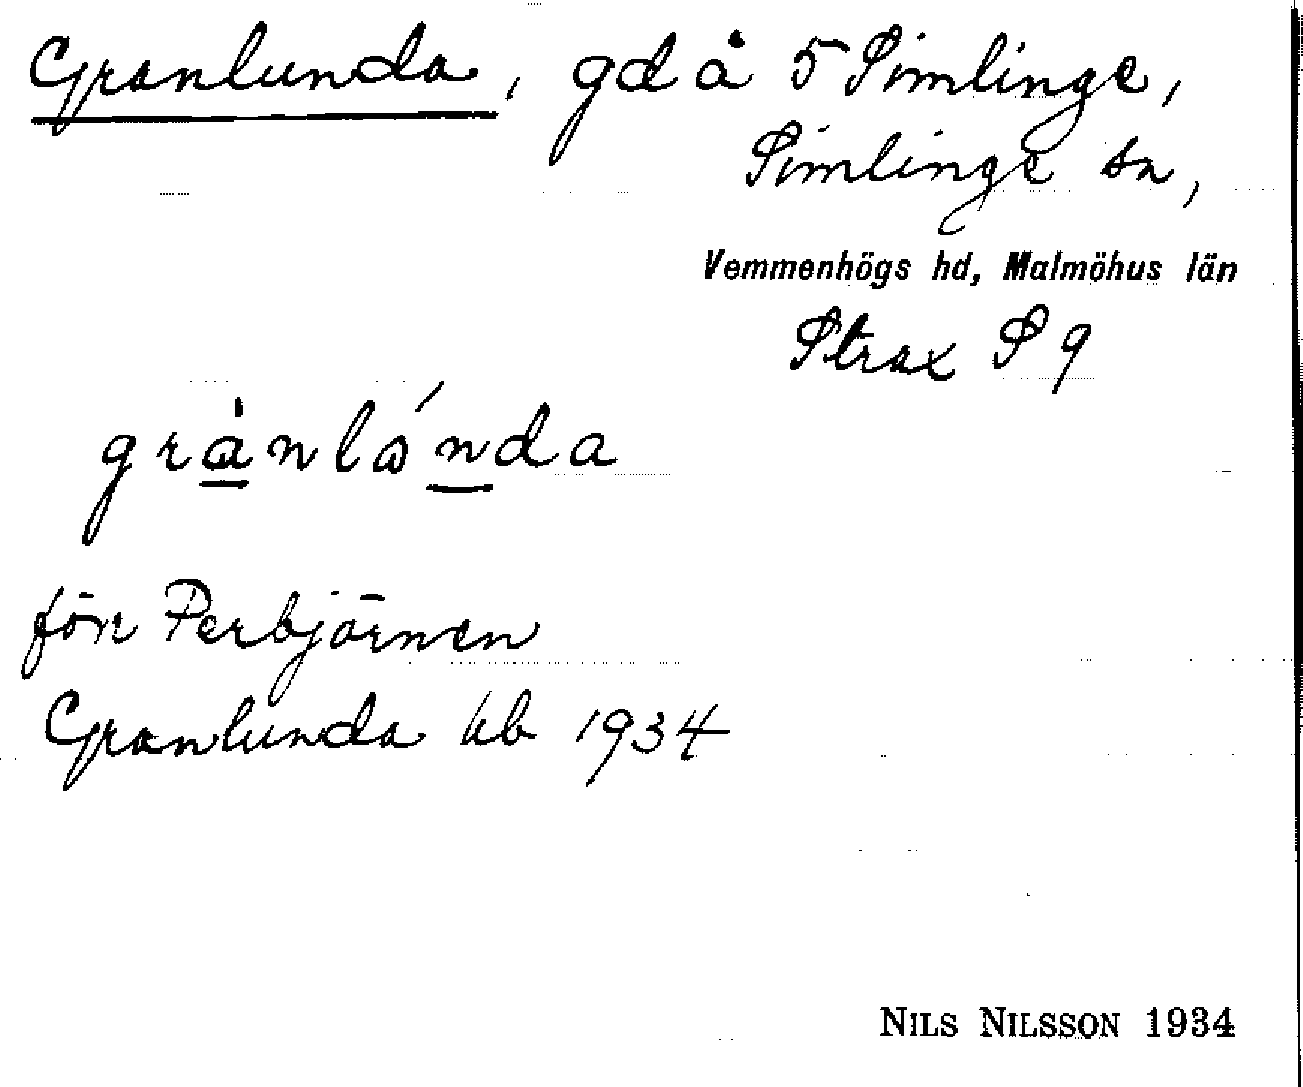 Granlunda, gd å 5 Simlinge,
Simlinge sn,
Vemmenhögs hd, Malmöhus län
Strax S 9
grånlónda
förr Perbjörnen
Granlunda kb 1934
NILS NILSSON 1934